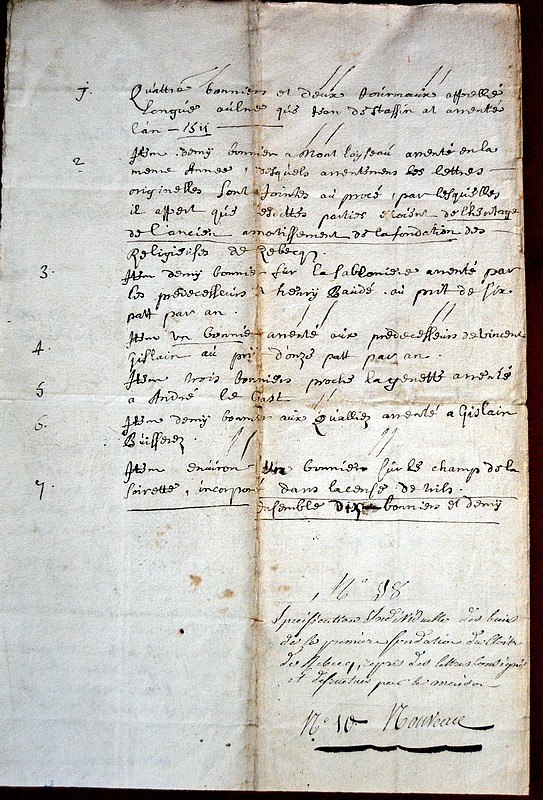 1. Quattre bonniers et deux journaux appellé
Longue aulnee que Jean de Staffin at arrenté
l'an – 1511
2 Item demy bonnier a Mont loyseau arrenté en la
meme Année, desquels arrentemens les lettres
originelles sont jointes au procé, par lesquelles
il appert que lesdittes parties etoient de l'heritage
de l'ancien amortissement de la fondation des
Religieuses de Rebecq.
3. Item demy bonnier sur la sabloniere arrenté par
les predecesseurs a henry Baudé au prit de six
patt par an.
4. Item un bonnier arrenté aux predecesseurs de vincent
Ghislain au prit d'onze patt par an.
5 Item trois bonniers proche la genette arrenté
a André le bast
6. Item demy bonnier aux Qualliez arrenté a Gislain
Buisseret
7 Item environ un bonnier sur le champ de la
Loirette, incorporé dans la cense de
ensemble dix bonniers et demy
N.° 98
Specification Individuelle des biens
de la premiere fondation du Cloitre
de Rebecq, repris des lettres
et par la maison
N.° 10 Nouveau